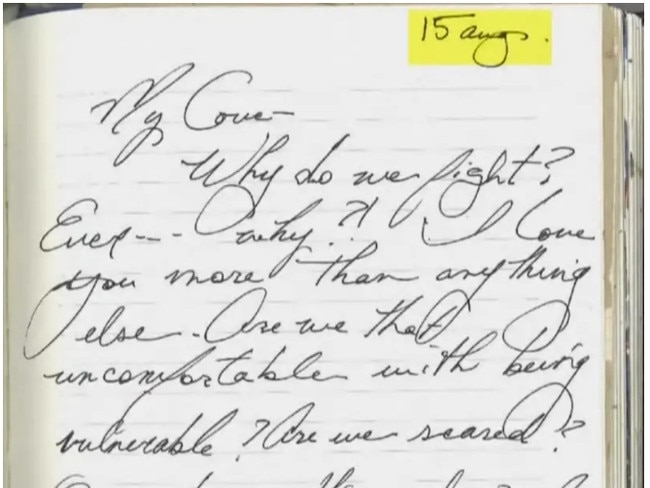 15 aug.
My Love-
Why do we fight?
Ever--- why..?! I love
you more than anything
else. Are we that
uncomfortable with being
vulnerable? Are we scared?